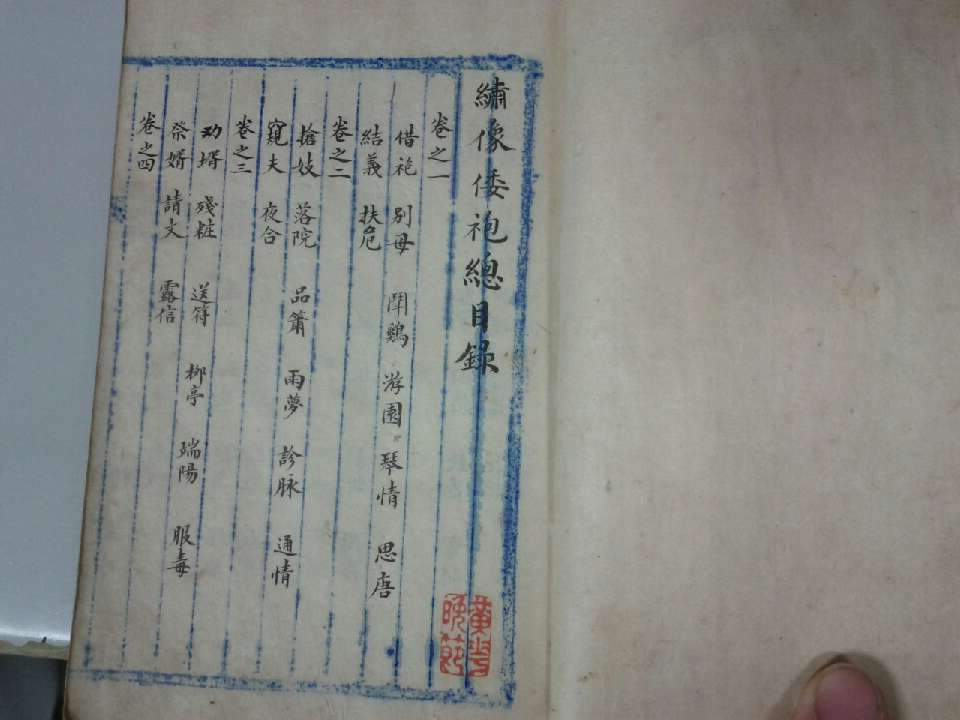 繡像倭袍總目錄
卷之一
借袍 别母 鬥鷄 游園 琴情 思唐
結義 扶危
卷之二
搶妓 落院 品簫 雨夢 診脉 通情
窺夫 夜合
卷之三
劝壻 殘粧 送符 柳亭 端陽 服毒
祭婿 請文 露信
卷之四
黄花
晚節